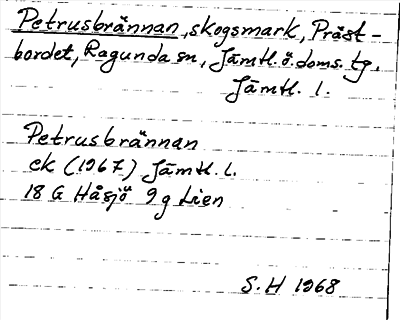 Petrusbrännan, skogsmark, Präst-
bordet, Ragunda sn, Jämtl. ö. doms. tg.
Jämtl. l.
Petrusbrännan
ek (1967) Jämtl. l.
18 G Håsjö 9 g Lien
S.H 1968